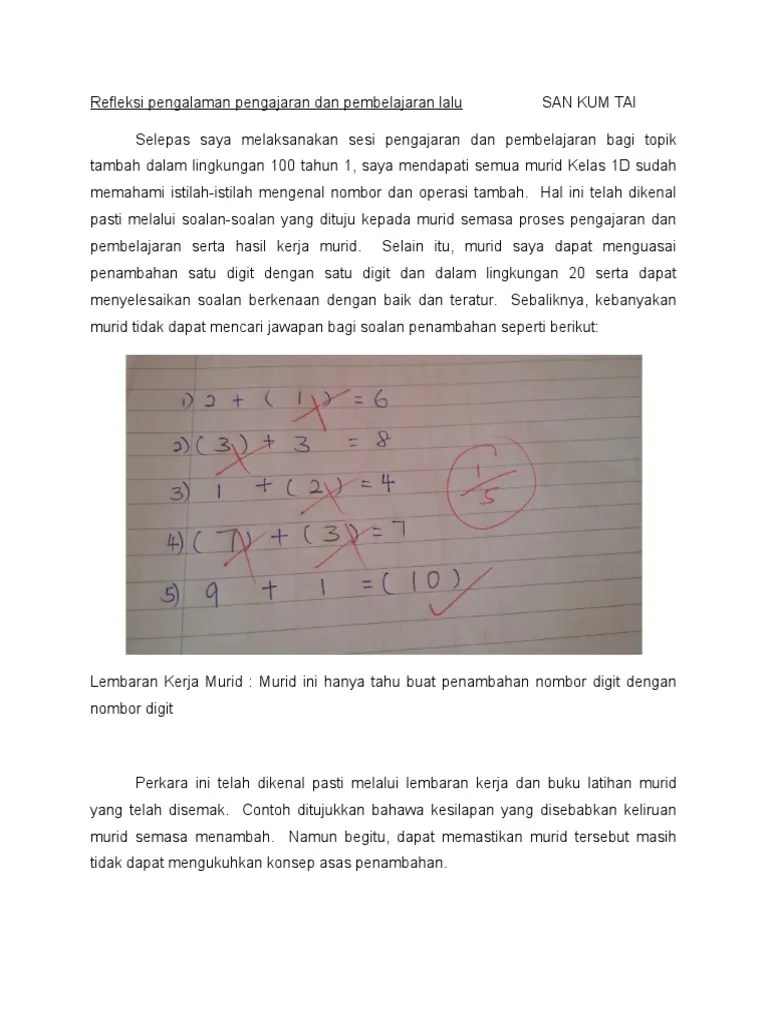 Refleksi pengalaman pengajaran dan pembelajaran lalu SAN KUM TAI
Selepas saya melaksanakan sesi pengajaran dan pembelajaran bagi topik
tambah dalam lingkungan 100 tahun 1, saya mendapati semua murid Kelas 1D sudah
memahami istilah-istilah mengenal nombor dan operasi tambah. Hal ini telah dikenal
pasti melalui soalan-soalan yang dituju kepada murid semasa proses pengajaran dan
pembelajaran serta hasil kerja murid. Selain itu, murid saya dapat menguasai
penambahan satu digit dengan satu digit dan dalam lingkungan 20 serta dapat
menyelesaikan soalan berkenaan dengan baik dan teratur. Sebaliknya, kebanyakan
murid tidak dapat mencari jawapan bagi soalan penambahan seperti berikut:
1) 2 + ( 1 ) = 6
2) ( 3 ) + 3 = 8
3) 1 + ( 2 ) = 4
1/5
4) ( 7 ) + ( 3 ) = 7
5) 9 + 1 = ( 10 )
Lembaran Kerja Murid : Murid ini hanya tahu buat penambahan nombor digit dengan
nombor digit
Perkara ini telah dikenal pasti melalui lembaran kerja dan buku latihan murid
yang telah disemak. Contoh ditujukkan bahawa kesilapan yang disebabkan keliruan
murid semasa menambah. Namun begitu, dapat memastikan murid tersebut masih
tidak dapat mengukuhkan konsep asas penambahan.